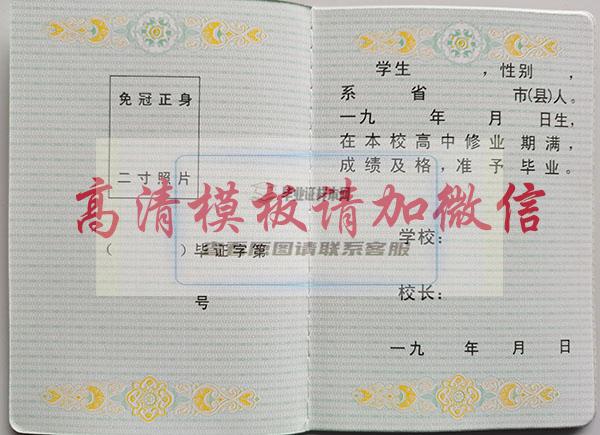 免冠正身
二寸照片
（　　　）毕证字第
号
学生　　，性别　，
系　　省　　市(县)人。
一九　　年　　月　　日生，
在本校高中修业 期满，
成绩及格，准 予 毕业。
学校：
校长：
一九　　年　　月　　日
高清模板请加微信
图请联系客服